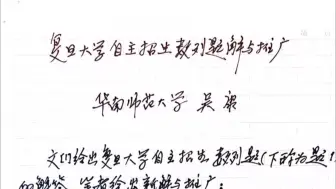 复旦大学自主招生数列题解与推广
华南师范大学 吴康
文[1]给出复旦大学自主招生数列题(下称为题1)
的解答，笔者给出新解与推广：